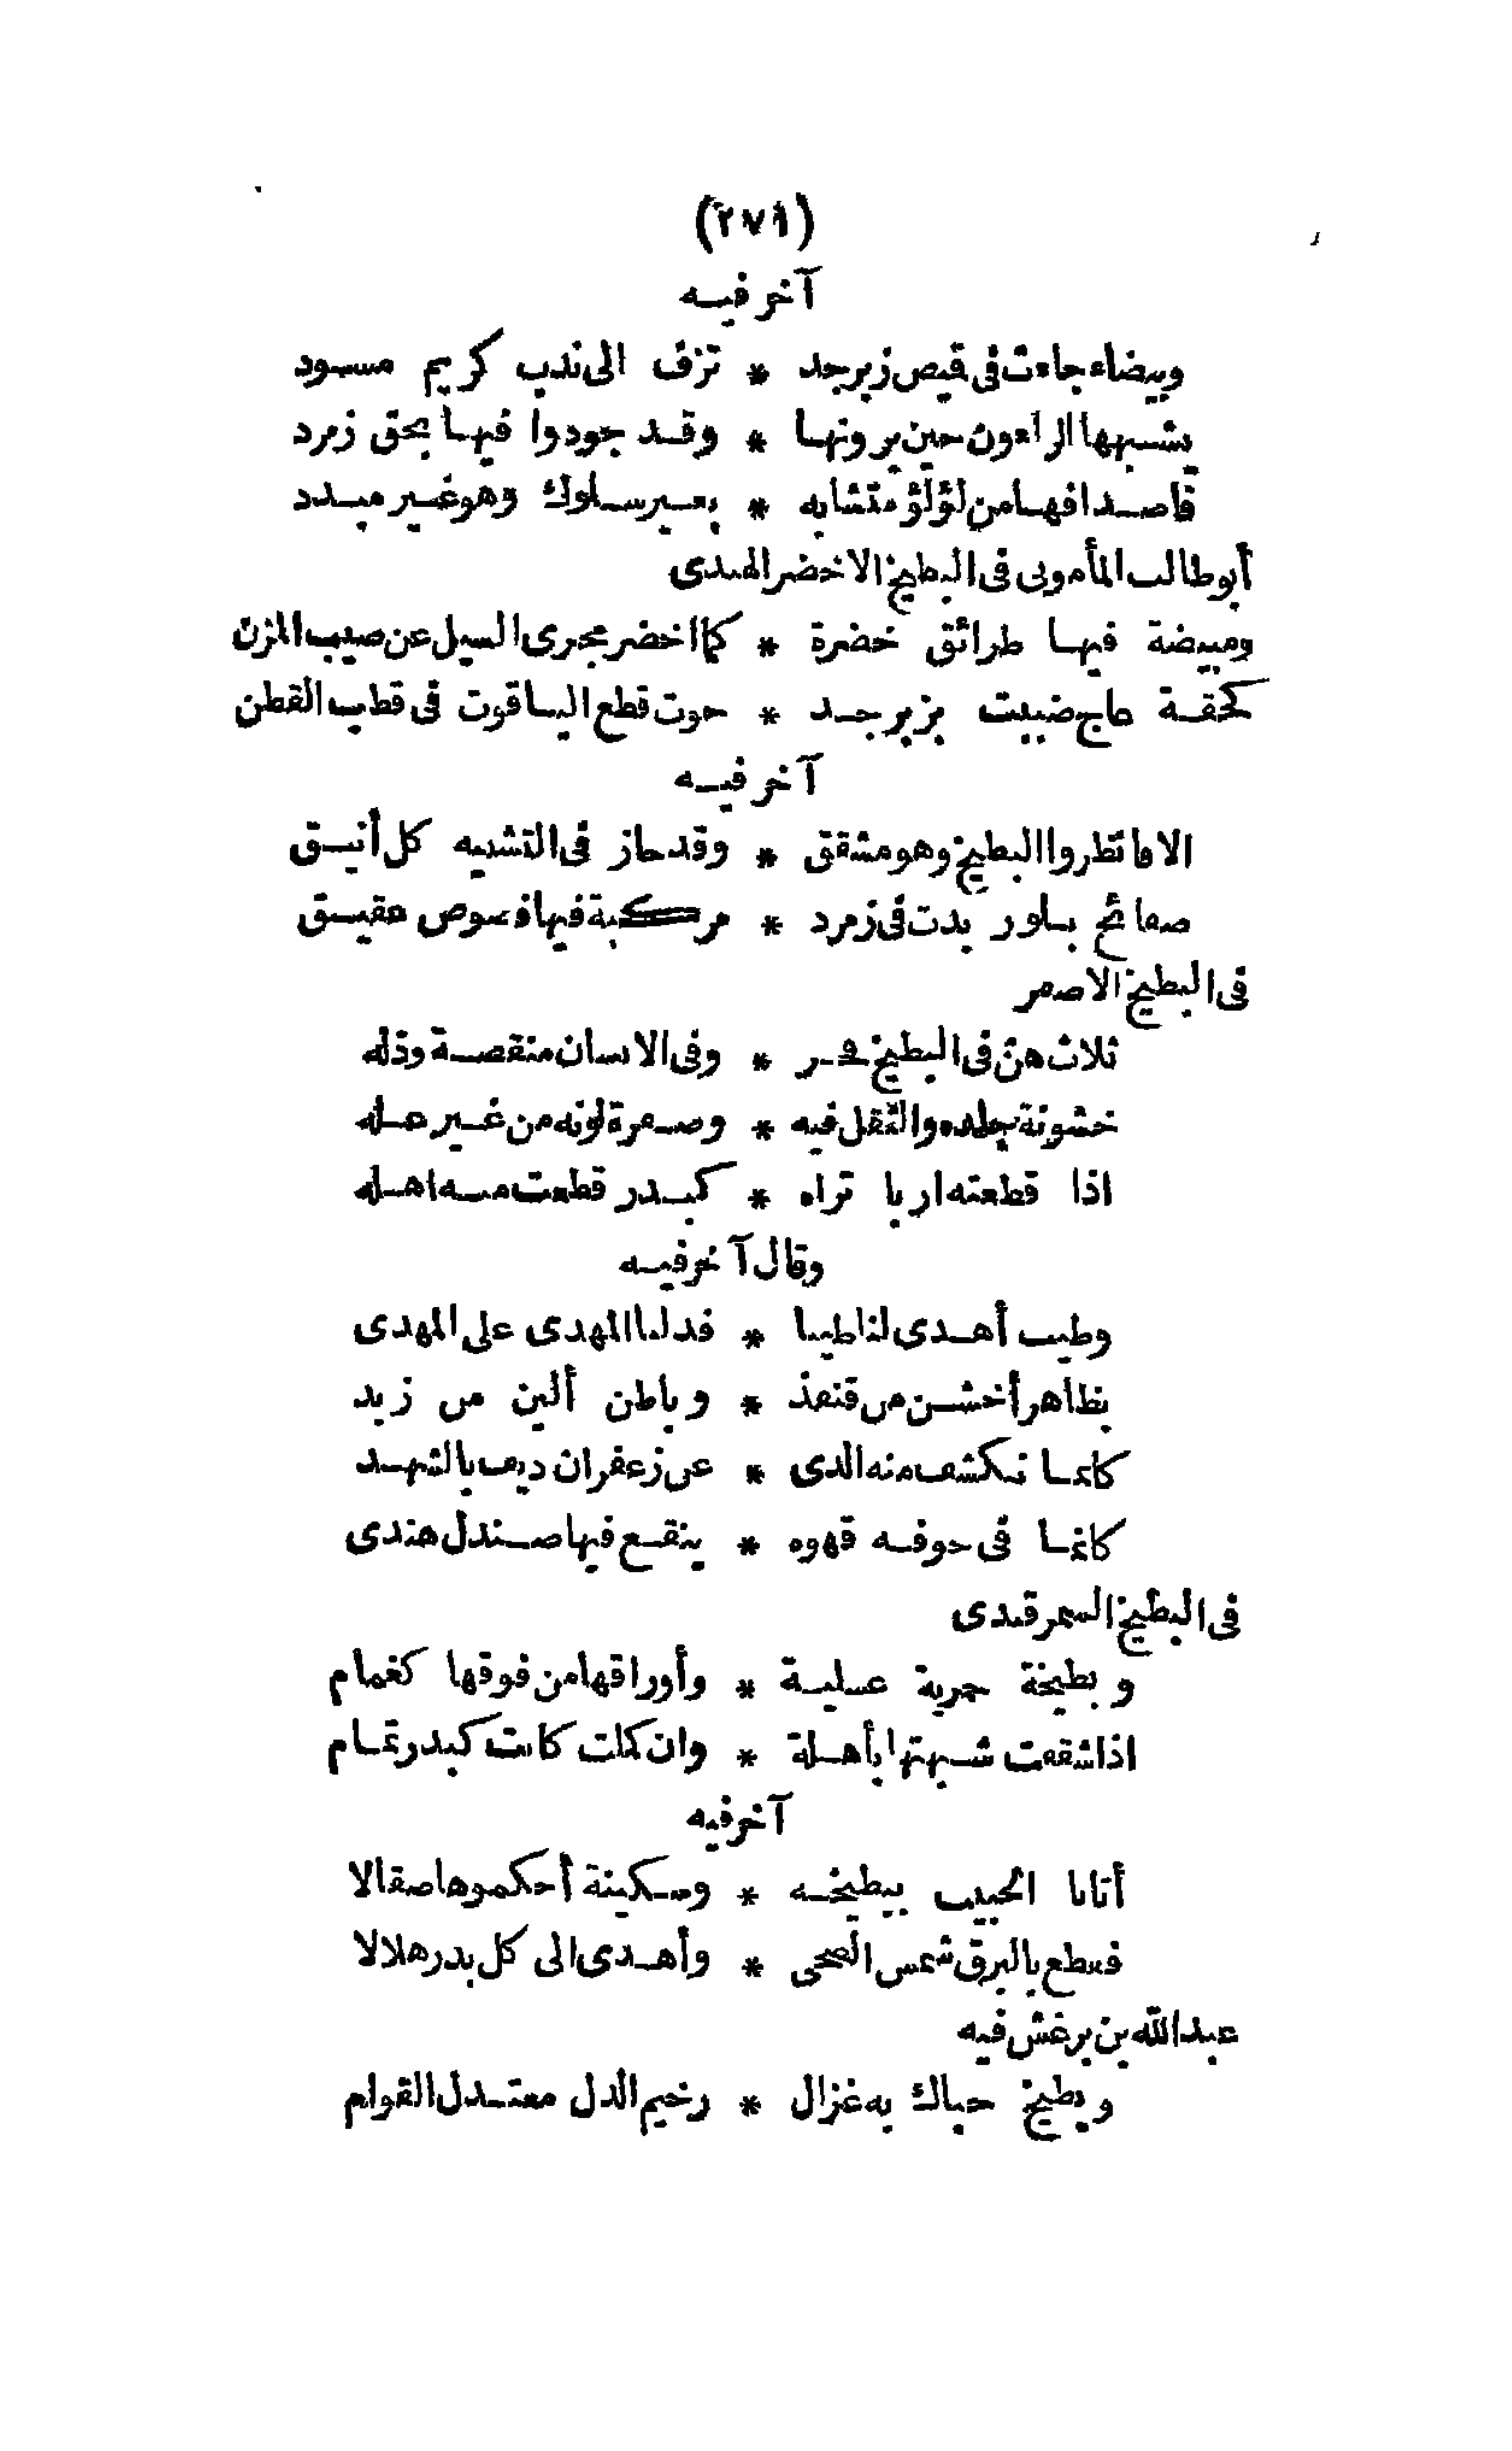 (٢٧١)
آخر فيه
وبيضاء جاءت فى قميص زبرجد * تزف الى ندب كريم مسود
يشبهها الراؤن حين يرونها * وقد جودوا فيها بحق زمرد
قاصدافها من لؤلؤ متشابه * بغير سلوك وهو غير مبدد
أبو طالب المأمونى فى البطيخ الاخضر الهندى
ومبيضة فيها طرائق خضرة * كما اخضر مجرى السيل عن صيب المزن
كحقة عاج ضببت بزبرجد * حوت قطع الياقوت فى قطب القطن
آخر فيه
الا فانظروا البطيخ وهو مشقق * وقد حاز فى التشبيه كل أنيق
صفائح بلور بدت فى زمرد * مركبة فيها فصوص عقيق
فى البطيخ الاصفر
ثلاث هن فى البطيخ فخر * وفى الانسان منقصة وذله
خشونة جلده والثقل فيه * وصفرة لونه من غير عله
اذا قطعته اربا تراه * كبدر قطعت منه اهله
وقال آخر فيه
وطيب أهدى لنا طيبا * فدلنا المهدى على المهدى
بظاهر أخشن من قنفذ * وباطن ألين من زبد
كانما تكشف منه المدى * عن زعفران ديف بالشهد
كانما فى جوفه قهوه * ينقع فيها صندل هندى
فى البطيخ السمرقندى
وبطيخة خمرية عسلية * وأوراقها من فوقها كغمام
اذا شققت شبهتها بأهلة * وان كملت كانت كبدر تمام
آخر فيه
أتانا الحبيب ببطيخه * وسكينة أحكموها صقالا
فقطع بالبرق شمس الضحى * وأهدى الى كل بدر هلالا
عبد الله بن برغش فيه
وبطيخ حباك به غزال * رخيم الدل معتدل القوام